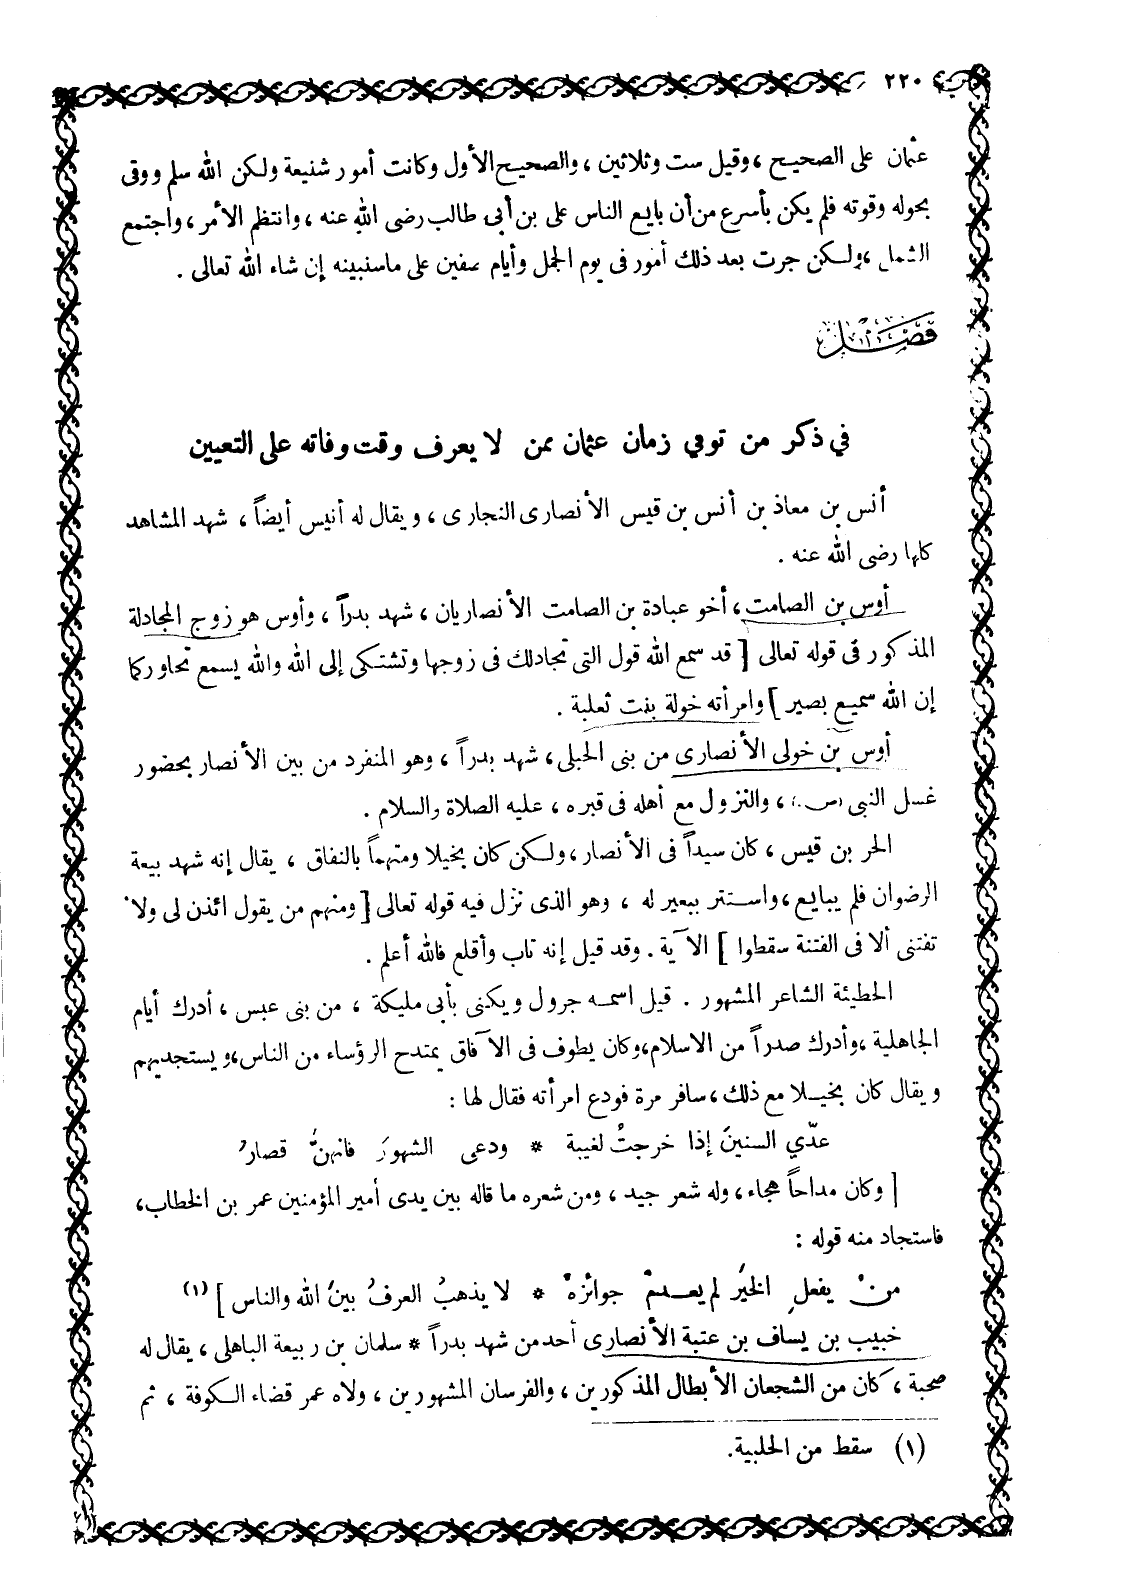 ٢٢٠
عثمان على الصحيح ، وقيل ست وثلاثين ، والصحيح الأول وكانت أمور شنيعة ولكن الله سلم ووقى
بحوله وقوته فلم يكن بأسرع من أن بايع الناس على بن أبى طالب رضى الله عنه ، وانتظم الأمر ، واجتمع
الشمل ، ولكن جرت بعد ذلك أمور فى يوم الجمل وأيام صفين على ماسنبينه إن شاء الله تعالى .
فصل
في ذكر من توفي زمان عثمان ممن لا يعرف وقت وفاته على التعيين
أنس بن معاذ بن أنس بن قيس الأنصارى النجارى ، ويقال له أنيس أيضاً ، شهد المشاهد
كلها رضى الله عنه .
أوس بن الصامت ، أخو عبادة بن الصامت الأنصاريان ، شهد بدراً ، وأوس هو زوج المجادلة
المذكور فى قوله تعالى [ قد سمع الله قول التى تجادلك فى زوجها وتشتكى إلى الله والله يسمع تحاوركما
إن الله سميع بصير ] وامرأته خولة بنت ثعلبة .
أوس بن خولى الأنصارى من بنى الحبلى ، شهد بدراً ، وهو المنفرد من بين الأنصار بحضور
غسل النبى (ص) ، والنزول مع أهله فى قبره ، عليه الصلاة والسلام .
الحر بن قيس ، كان سيداً فى الأنصار ، ولكن كان بخيلا ومتهماً بالنفاق ، يقال إنه شهد بيعة
الرضوان فلم يبايع ، واستتر ببعير له ، وهو الذى نزل فيه قوله تعالى [ ومنهم من يقول ائذن لى ولا
تفتنى ألا فى الفتنة سقطوا ] الآية . وقد قيل إنه تاب وأقلع فالله أعلم .
الحطيئة الشاعر المشهور . قيل اسمه جرول ويكنى بأبى مليكة ، من بنى عبس ، أدرك أيام
الجاهلية ، وأدرك صدراً من الاسلام ، وكان يطوف فى الآفاق يمتدح الرؤساء من الناس ، ويستجديهم
ويقال كان بخيلا مع ذلك ، سافر مرة فودع امرأته فقال لها :
عدّي السنينَ إذا خرجتُ لغيبة * ودعى الشهورَ فانهنَّ قصارُ
[ وكان مداحاً هجاء ، وله شعر جيد ، ومن شعره ما قاله بين يدى أمير المؤمنين عمر بن الخطاب ،
فاستجاد منه قوله :
منْ يفعلِ الخيرَ لم يعدمْ جوائزهْ * لا يذهبُ العرفُ بينَ الله والناس ] (١)
خبيب بن يساف بن عتبة الأنصارى أحد من شهد بدراً * سلمان بن ربيعة الباهلى ، يقال له
صحبة ، كان من الشجعان الأبطال المذكورين ، والفرسان المشهورين ، ولاه عمر قضاء الكوفة ، ثم
(١) سقط من الحلبية.